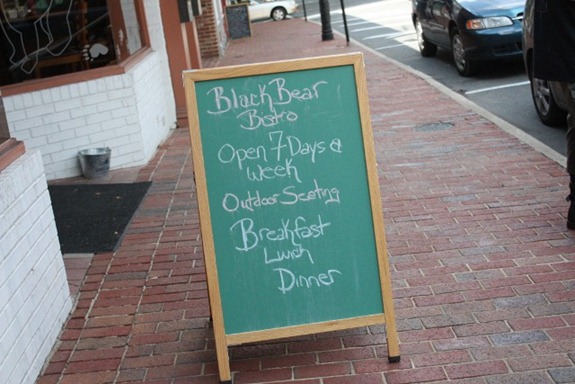 Black Bear
Bistro
Open 7 Days a
week
Outdoor Seating
Breakfast
Lunch
Dinner